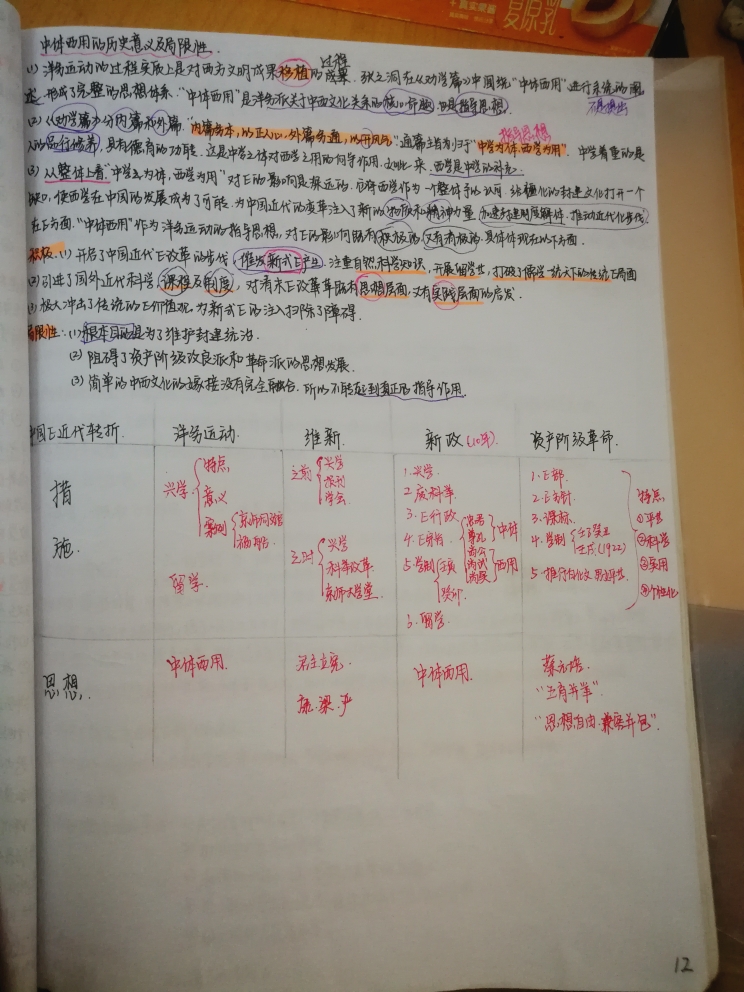 真实果酱
复原乳
中体西用的历史意义及局限性.
过程
(1) 洋务运动的过程实质上是对西方文明成果移植的成果. 张之洞在《劝学篇》中围绕“中体西用”进行系统的阐
述 形成了完整的思想体系. “中体西用”是洋务派关于中西文化关系的核心命题 也是指导思想.
(2) 《劝学篇》分内篇和外篇. “内篇务本, 以正人心, 外篇务通, 以开风气” 通篇主旨归于“中学为体, 西学为用”. 中学着重的是
指导思想
人的品行修养, 具有德育的功能. 这是中学之体对西学之用的向导作用. 如此一来, 西学是中学的补充.
(3) 从整体上看 “中学为体, 西学为用” 对E的影响是深远的. 它将西学作为一个整体予以认可 给僵化的封建文化打开一个
缺口, 使西学在中国的发展成为了可能. 为中国近代的变革注入了新的物质和精神力量. 加速封建制度解体, 推动近代化步伐.
在E方面. “中体西用”作为洋务运动的指导思想, 对E的影响既有积极的, 又有消极的 具体体现在以下方面.
积极: (1) 开启了中国近代E改革的步伐, 催发新式E产生. 注重自然科学知识, 开展留学E, 打破了儒学一统天下的传统E局面
(2) 引进了国外近代科学, 课程及制度, 对清末E改革既有思想层面, 又有实践层面的启发.
(3) 极大冲击了传统的E价值观, 为新式E的注入扫除了障碍.
局限性: (1) 根本目的是为了维护封建统治.
(2) 阻碍了资产阶级改良派和革命派的思想发展.
(3) 简单的中西文化的嫁接 没有完全融合. 所以不能起到真正的指导作用.
中国E近代转折. 洋务运动. 维新. 新政 (10年) 资产阶级革命.
措施.
兴学
特点
意义
案例
京师同文馆
福
留学.
之前
兴学
报刊
学会.
之时
兴学
科举改革
京师大学堂.
1. 兴学.
2. 废科举.
3. E行政
4. E宗旨
忠君
尊孔
尚公
尚武
尚实
中体
西用
5. 学制
壬寅
癸卯.
6. 留学.
1. E部.
2. E方针
3. 课标.
4. 学制
壬子癸丑
壬戌(1922)
5. 推行白话文
特点.
①平等
②科学
③实用
④个性化
思想.
中体西用.
君主立宪.
康. 梁. 严
中体西用.
蔡元培.
“五育并举”
“思想自由. 兼容并包”.
12